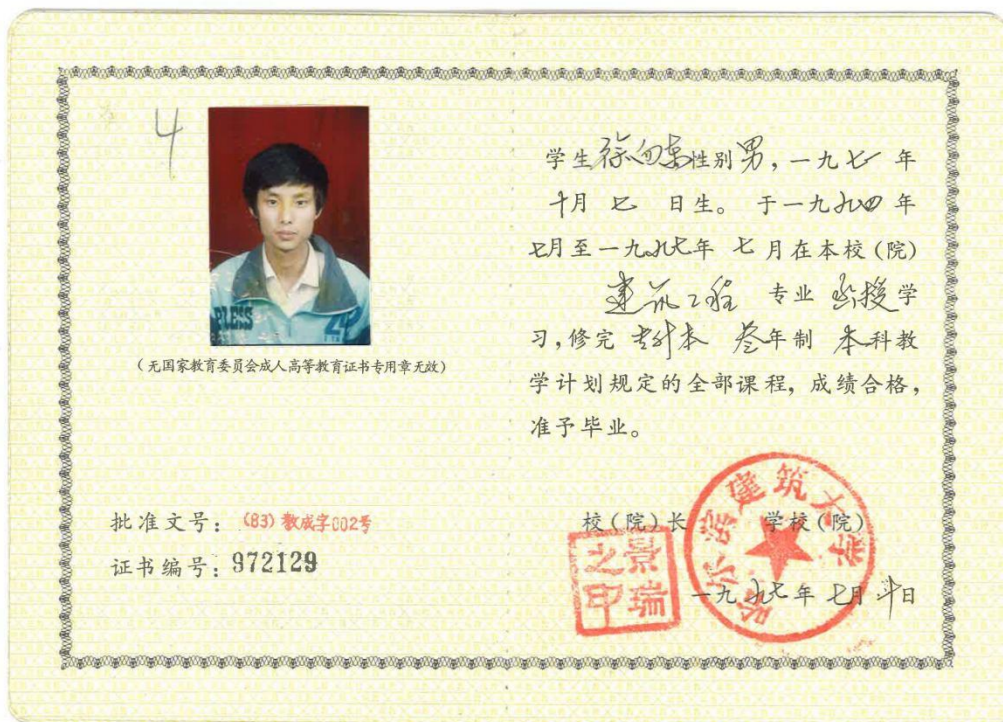 4
(无国家教育委员会成人高等教育证书专用章无效)
批准文号：(83)教成字002号
证书编号：972129
学生徐 性别男，一九七 年
十月七 日生。于一九九四年
七月至一九九七年 七月在本校(院)
建筑工程 专业 函授学
习，修完 专升本 叁年制 本科教
学计划规定的全部课程，成绩合格，
准予毕业。
校(院)长 学校(院)
哈尔滨建筑大学
景瑞之印
一九九七年七月 日